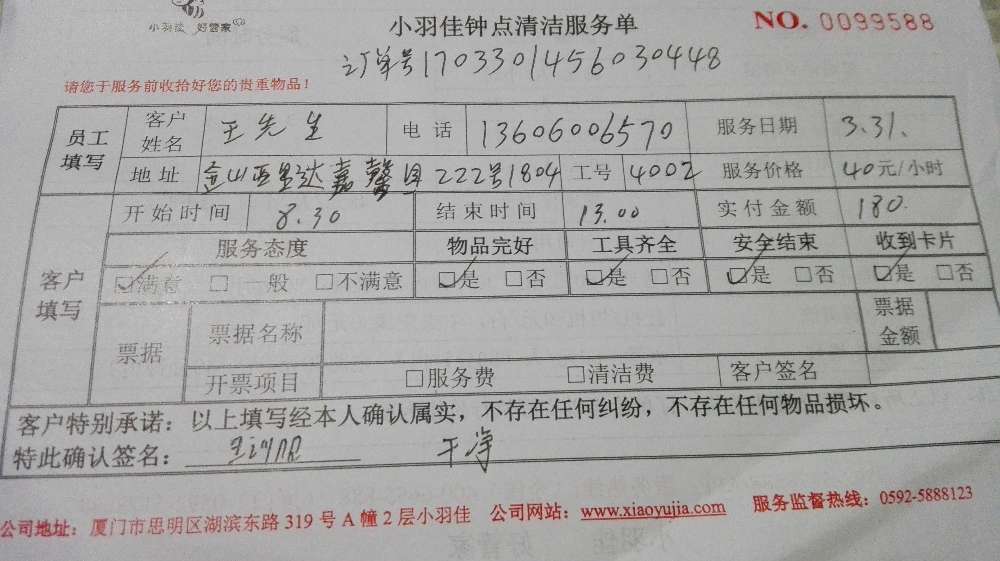 小羽佳 好管家
小羽佳钟点清洁服务单
NO. 0099588
订单号1703301456030448
请您于服务前收拾好您的贵重物品！
员工填写 客户姓名 王先生 电话 13606006570 服务日期 3.31.
地址 金山西里达嘉馨园222号1804 工号 4002 服务价格 40元/小时
客户填写 开始时间 8.30 结束时间 13.00 实付金额 180.
服务态度 物品完好 工具齐全 安全结束 收到卡片
☑满意 □一般 □不满意 ☑是 □否 ☑是 □否 ☑是 □否 ☑是 □否
票据 票据名称 票据金额
开票项目 □服务费 □清洁费 客户签名
客户特别承诺：以上填写经本人确认属实，不存在任何纠纷，不存在任何物品损坏。
特此确认签名： 干净
公司地址：厦门市思明区湖滨东路319号A幢2层小羽佳 公司网站：www.xiaoyujia.com 服务监督热线：0592-5888123